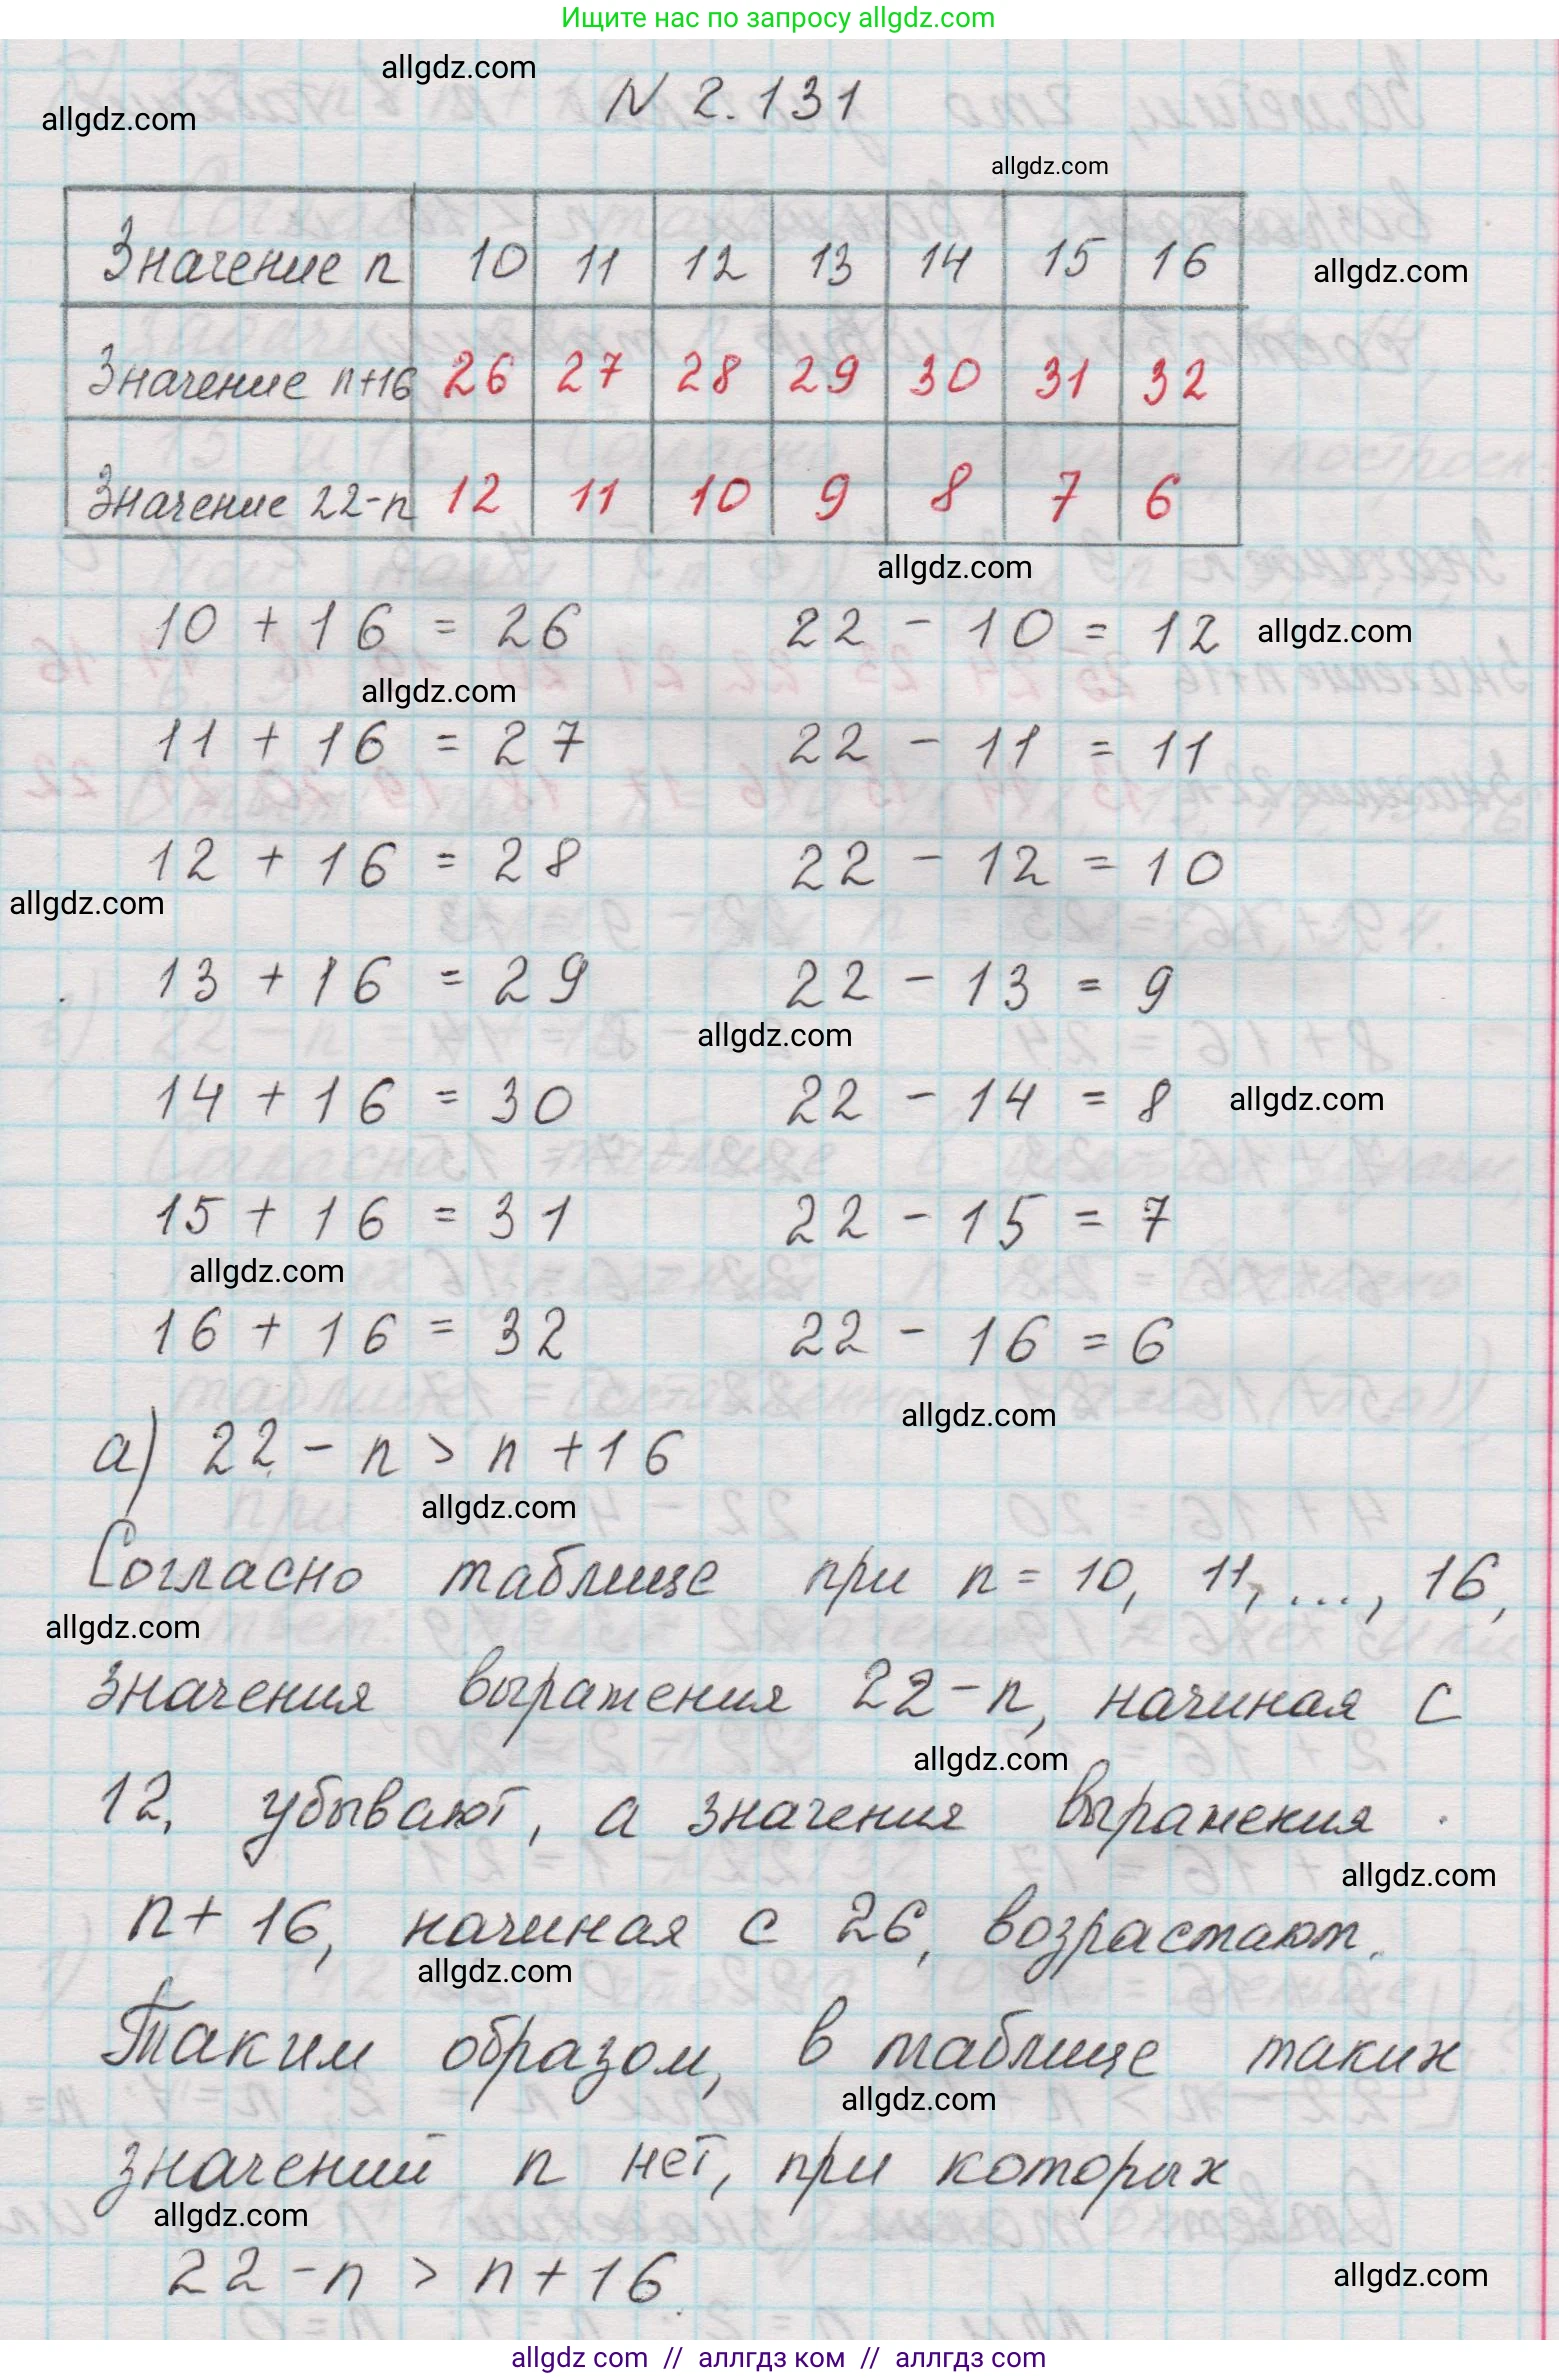 Ищите нас по запросу allgdz.com
allgdz.com
N 2.131
allgdz.com
allgdz.com
Значение n 10 11 12 13 14 15 16
allgdz.com
Значение n+16 26 27 28 29 30 31 32
Значение 22-n 12 11 10 9 8 7 6
allgdz.com
10 + 16 = 26 22 - 10 = 12 allgdz.com
allgdz.com
11 + 16 = 27 22 - 11 = 11
12 + 16 = 28 22 - 12 = 10
allgdz.com
13 + 16 = 29 22 - 13 = 9
allgdz.com
14 + 16 = 30 22 - 14 = 8 allgdz.com
15 + 16 = 31 22 - 15 = 7
allgdz.com
16 + 16 = 32 22 - 16 = 6
allgdz.com
а) 22 - n > n + 16
allgdz.com
Согласно таблице при n = 10, 11, ..., 16,
allgdz.com
значения выражения 22 - n, начиная с
allgdz.com
12, убывают, а значения выражения
allgdz.com
n + 16, начиная с 26, возрастают.
allgdz.com
Таким образом, в таблице таких
allgdz.com
значений n нет, при которых
allgdz.com
22 - n > n + 16.
allgdz.com
allgdz.com // аллгдз ком // аллгдз com